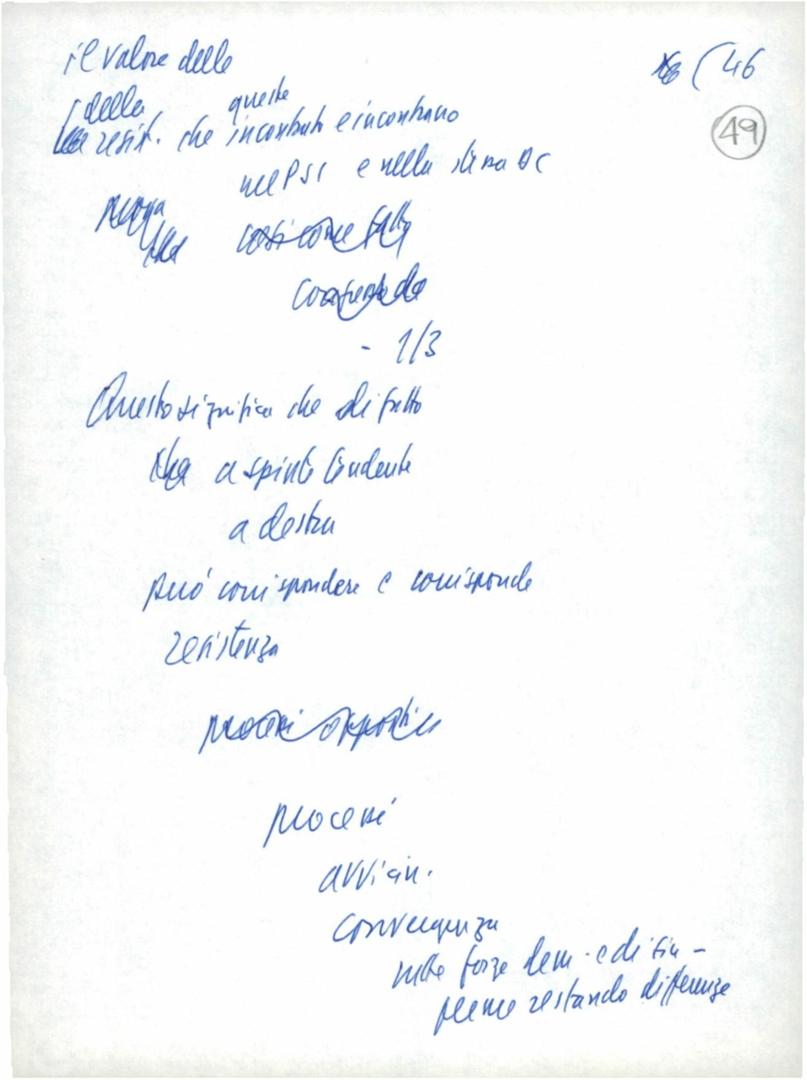 il valore delle
46
49
della queste
resist. che incontrato e incontrano
nel PSI e nella stessa DC
così come fatto
- 1/3
Questo significa che di fatto
che a spinte tendente
a destra
può corrispondere e corrisponde
resistenza
processi opposti
processi
avvicin.
convergenza
nelle forze dem. e di sin -
pur restando differenze